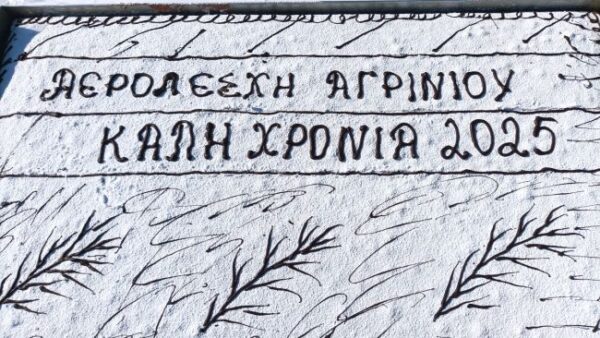 ΑΕΡΟΛΕΣΧΗ ΑΓΡΙΝΙΟΥ
ΚΑΛΗ ΧΡΟΝΙΑ 2025